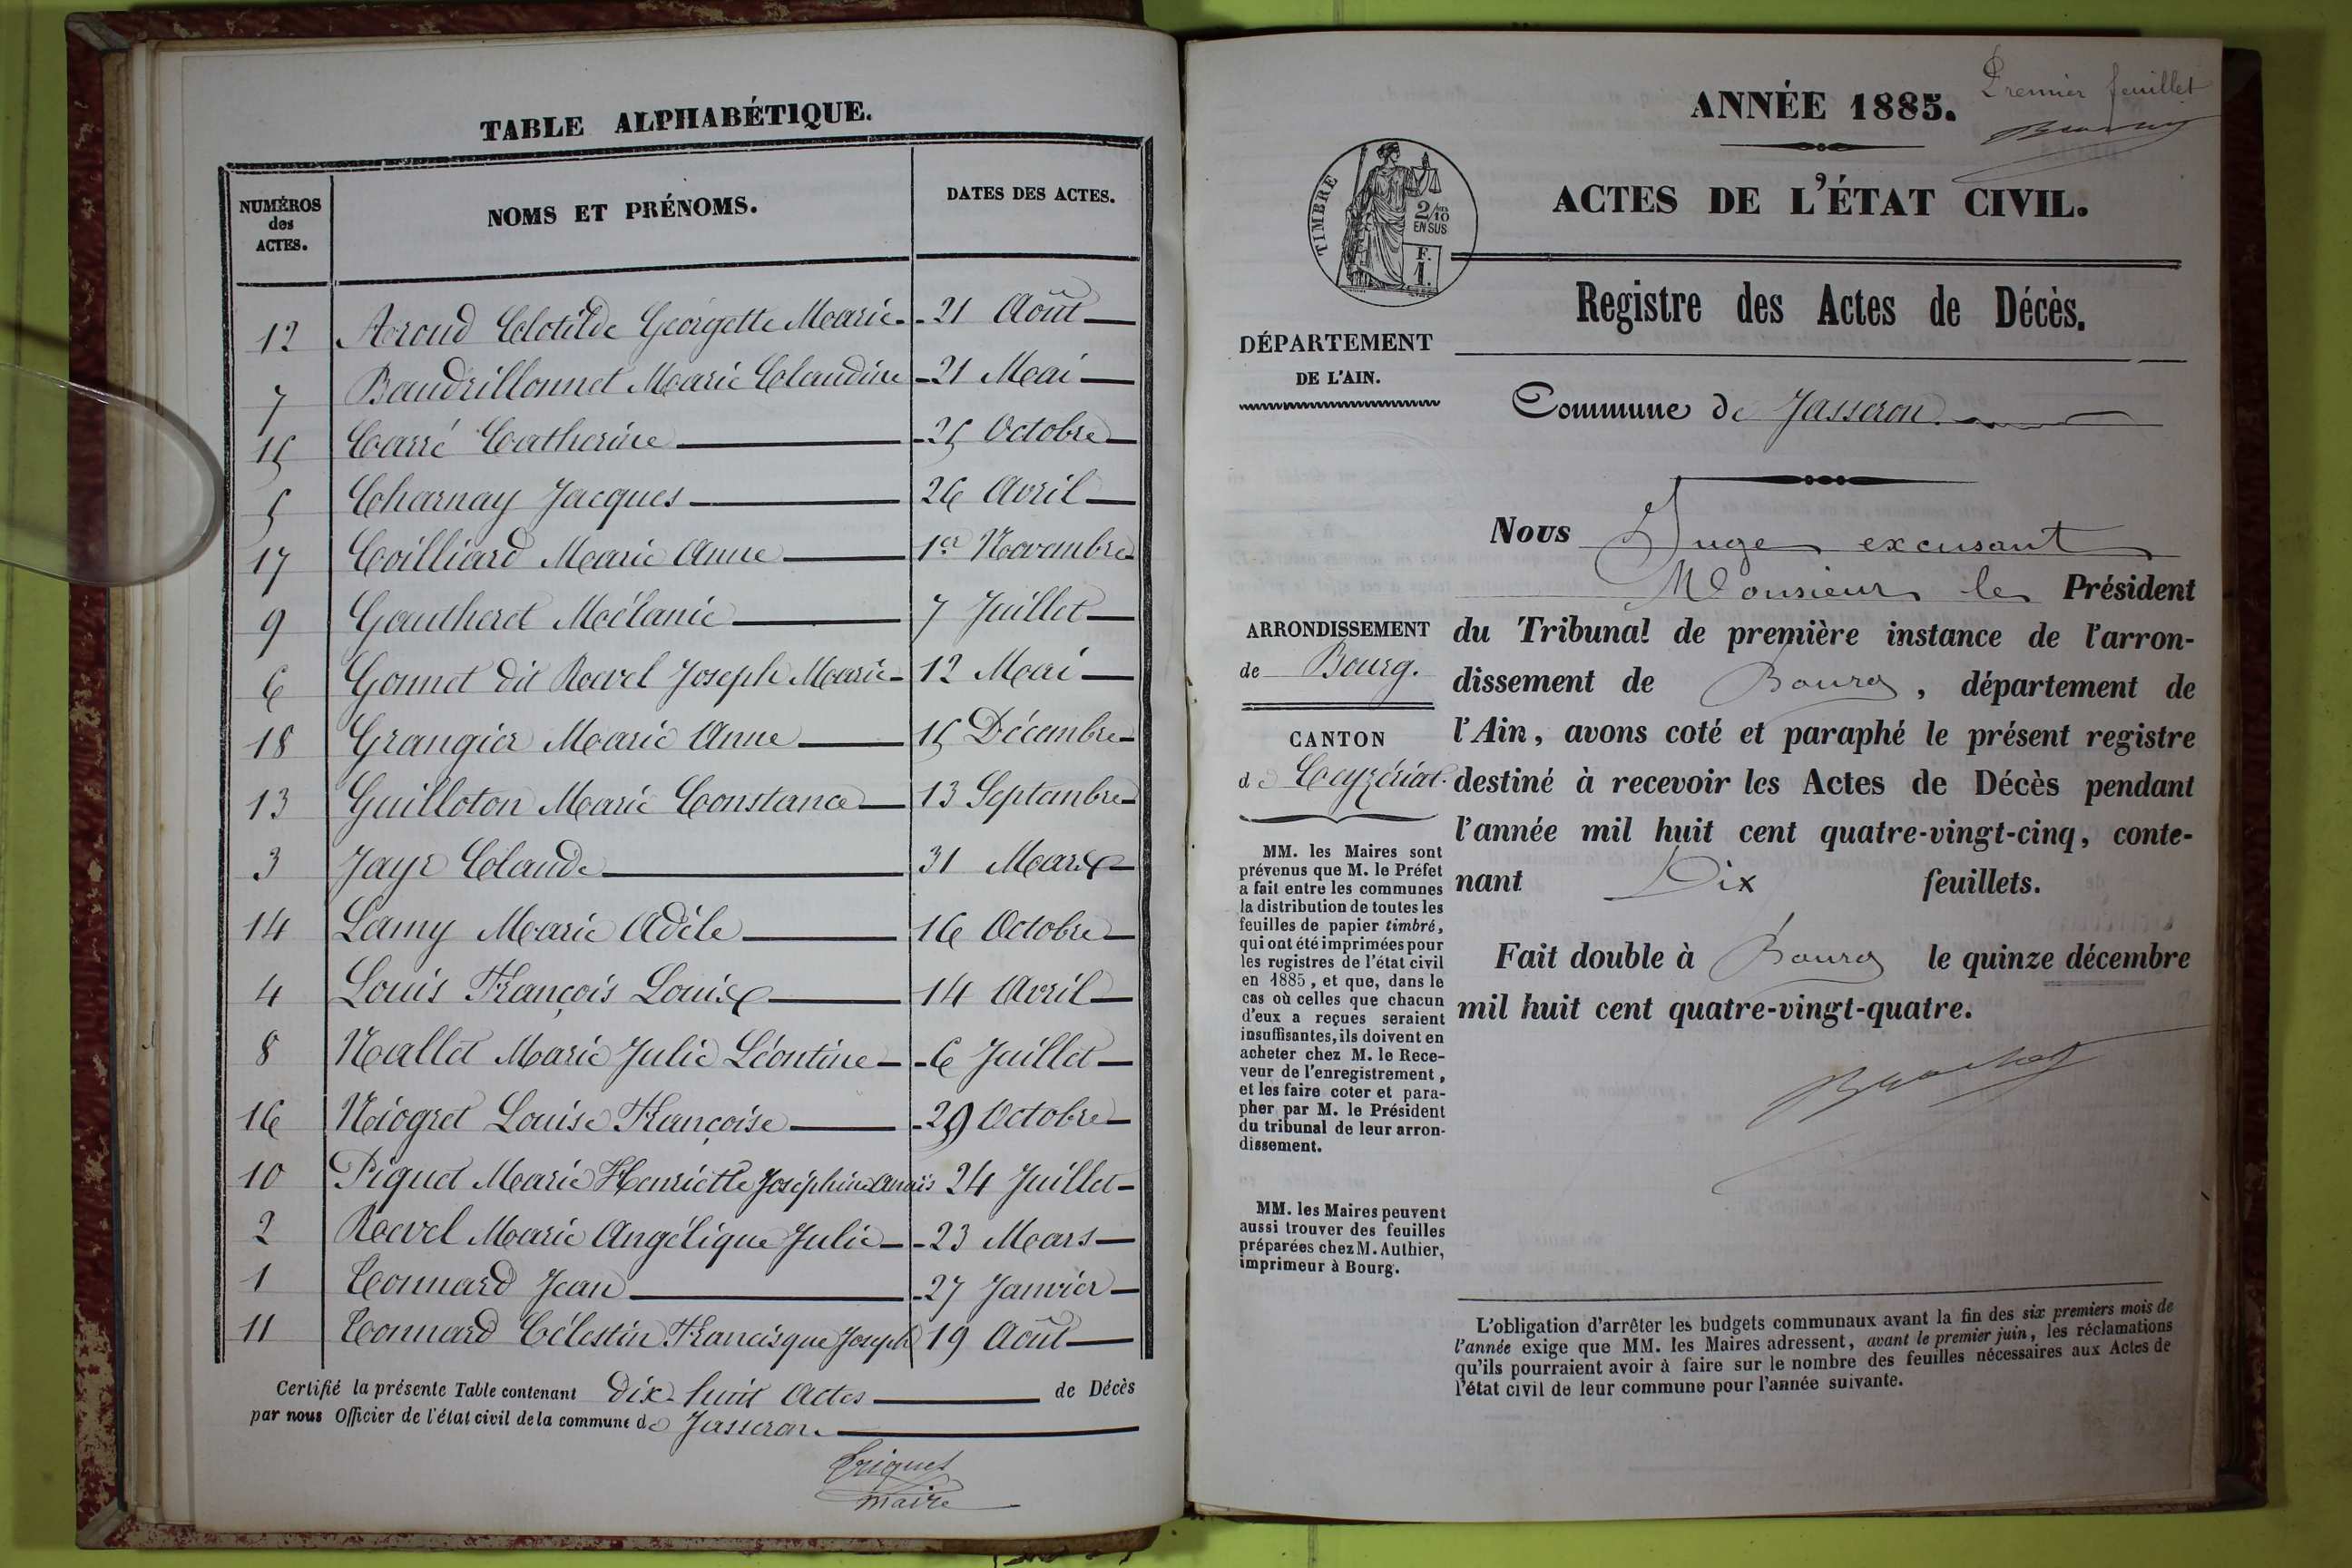 TABLE ALPHABÉTIQUE.
NUMÉROS des ACTES. NOMS ET PRÉNOMS. DATES DES ACTES.
12 Aroud Clotilde Géorgette Marie 21 Août
7 Baudrillonnet Marie Claudine 21 Mai
15 Carré Catherine 25 Octobre
5 Charnay Jacques 26 Avril
17 Coilliard Marie Anne 1er Novembre
9 Gautheret Mélanie 7 Juillet
6 Gonnet dit Revel Joseph Marie 12 Mai
18 Grangier Marie Anne 15 Décembre
13 Guilloton Marie Constance 13 Septembre
3 Jayr Claude 31 Mars
14 Lamy Marie Adèle 16 Octobre
4 Louis François Louis 14 Avril
8 Nallet Marie Julie Léontine 6 Juillet
16 Niogret Louise Françoise 29 Octobre
10 Piquet Marie Henriette Joséphine Anaïs 24 Juillet
2 Revel Marie Angélique Julie 23 Mars
1 Tonnard Jean 27 Janvier
11 Tonnard Célestin Francisque Joseph 19 Août
Certifié la présente Table contenant dix-huit Actes de Décès
par nous Officier de l'état civil de la commune de Jasseron.
maire
Premier feuillet
ANNÉE 1885.
ACTES DE L'ÉTAT CIVIL.
TIMBRE
2/10 EN SUS
F.
1.
Registre des Actes de Décès.
DÉPARTEMENT
DE L'AIN.
Commune de Jasseron
Nous Juge excusant
Monsieur le Président
du Tribunal de première instance de l'arron-
dissement de Bourg, département de
l'Ain, avons coté et paraphé le présent registre
destiné à recevoir les Actes de Décès pendant
l'année mil huit cent quatre-vingt-cinq, conte-
nant Dix feuillets.
Fait double à Bourg le quinze décembre
mil huit cent quatre-vingt-quatre.
ARRONDISSEMENT
de Bourg.
CANTON
de Ceyzériat.
MM. les Maires sont
prévenus que M. le Préfet
a fait entre les communes
la distribution de toutes les
feuilles de papier timbré,
qui ont été imprimées pour
les registres de l'état civil
en 1885, et que, dans le
cas où celles que chacun
d'eux a reçues seraient
insuffisantes, ils doivent en
acheter chez M. le Rece-
veur de l'enregistrement,
et les faire coter et para-
pher par M. le Président
du tribunal de leur arron-
dissement.
MM. les Maires peuvent
aussi trouver des feuilles
préparées chez M. Authier,
imprimeur à Bourg.
L'obligation d'arrêter les budgets communaux avant la fin des six premiers mois de
l'année exige que MM. les Maires adressent, avant le premier juin, les réclamations
qu'ils pourraient avoir à faire sur le nombre des feuilles nécessaires aux Actes de
l'état civil de leur commune pour l'année suivante.